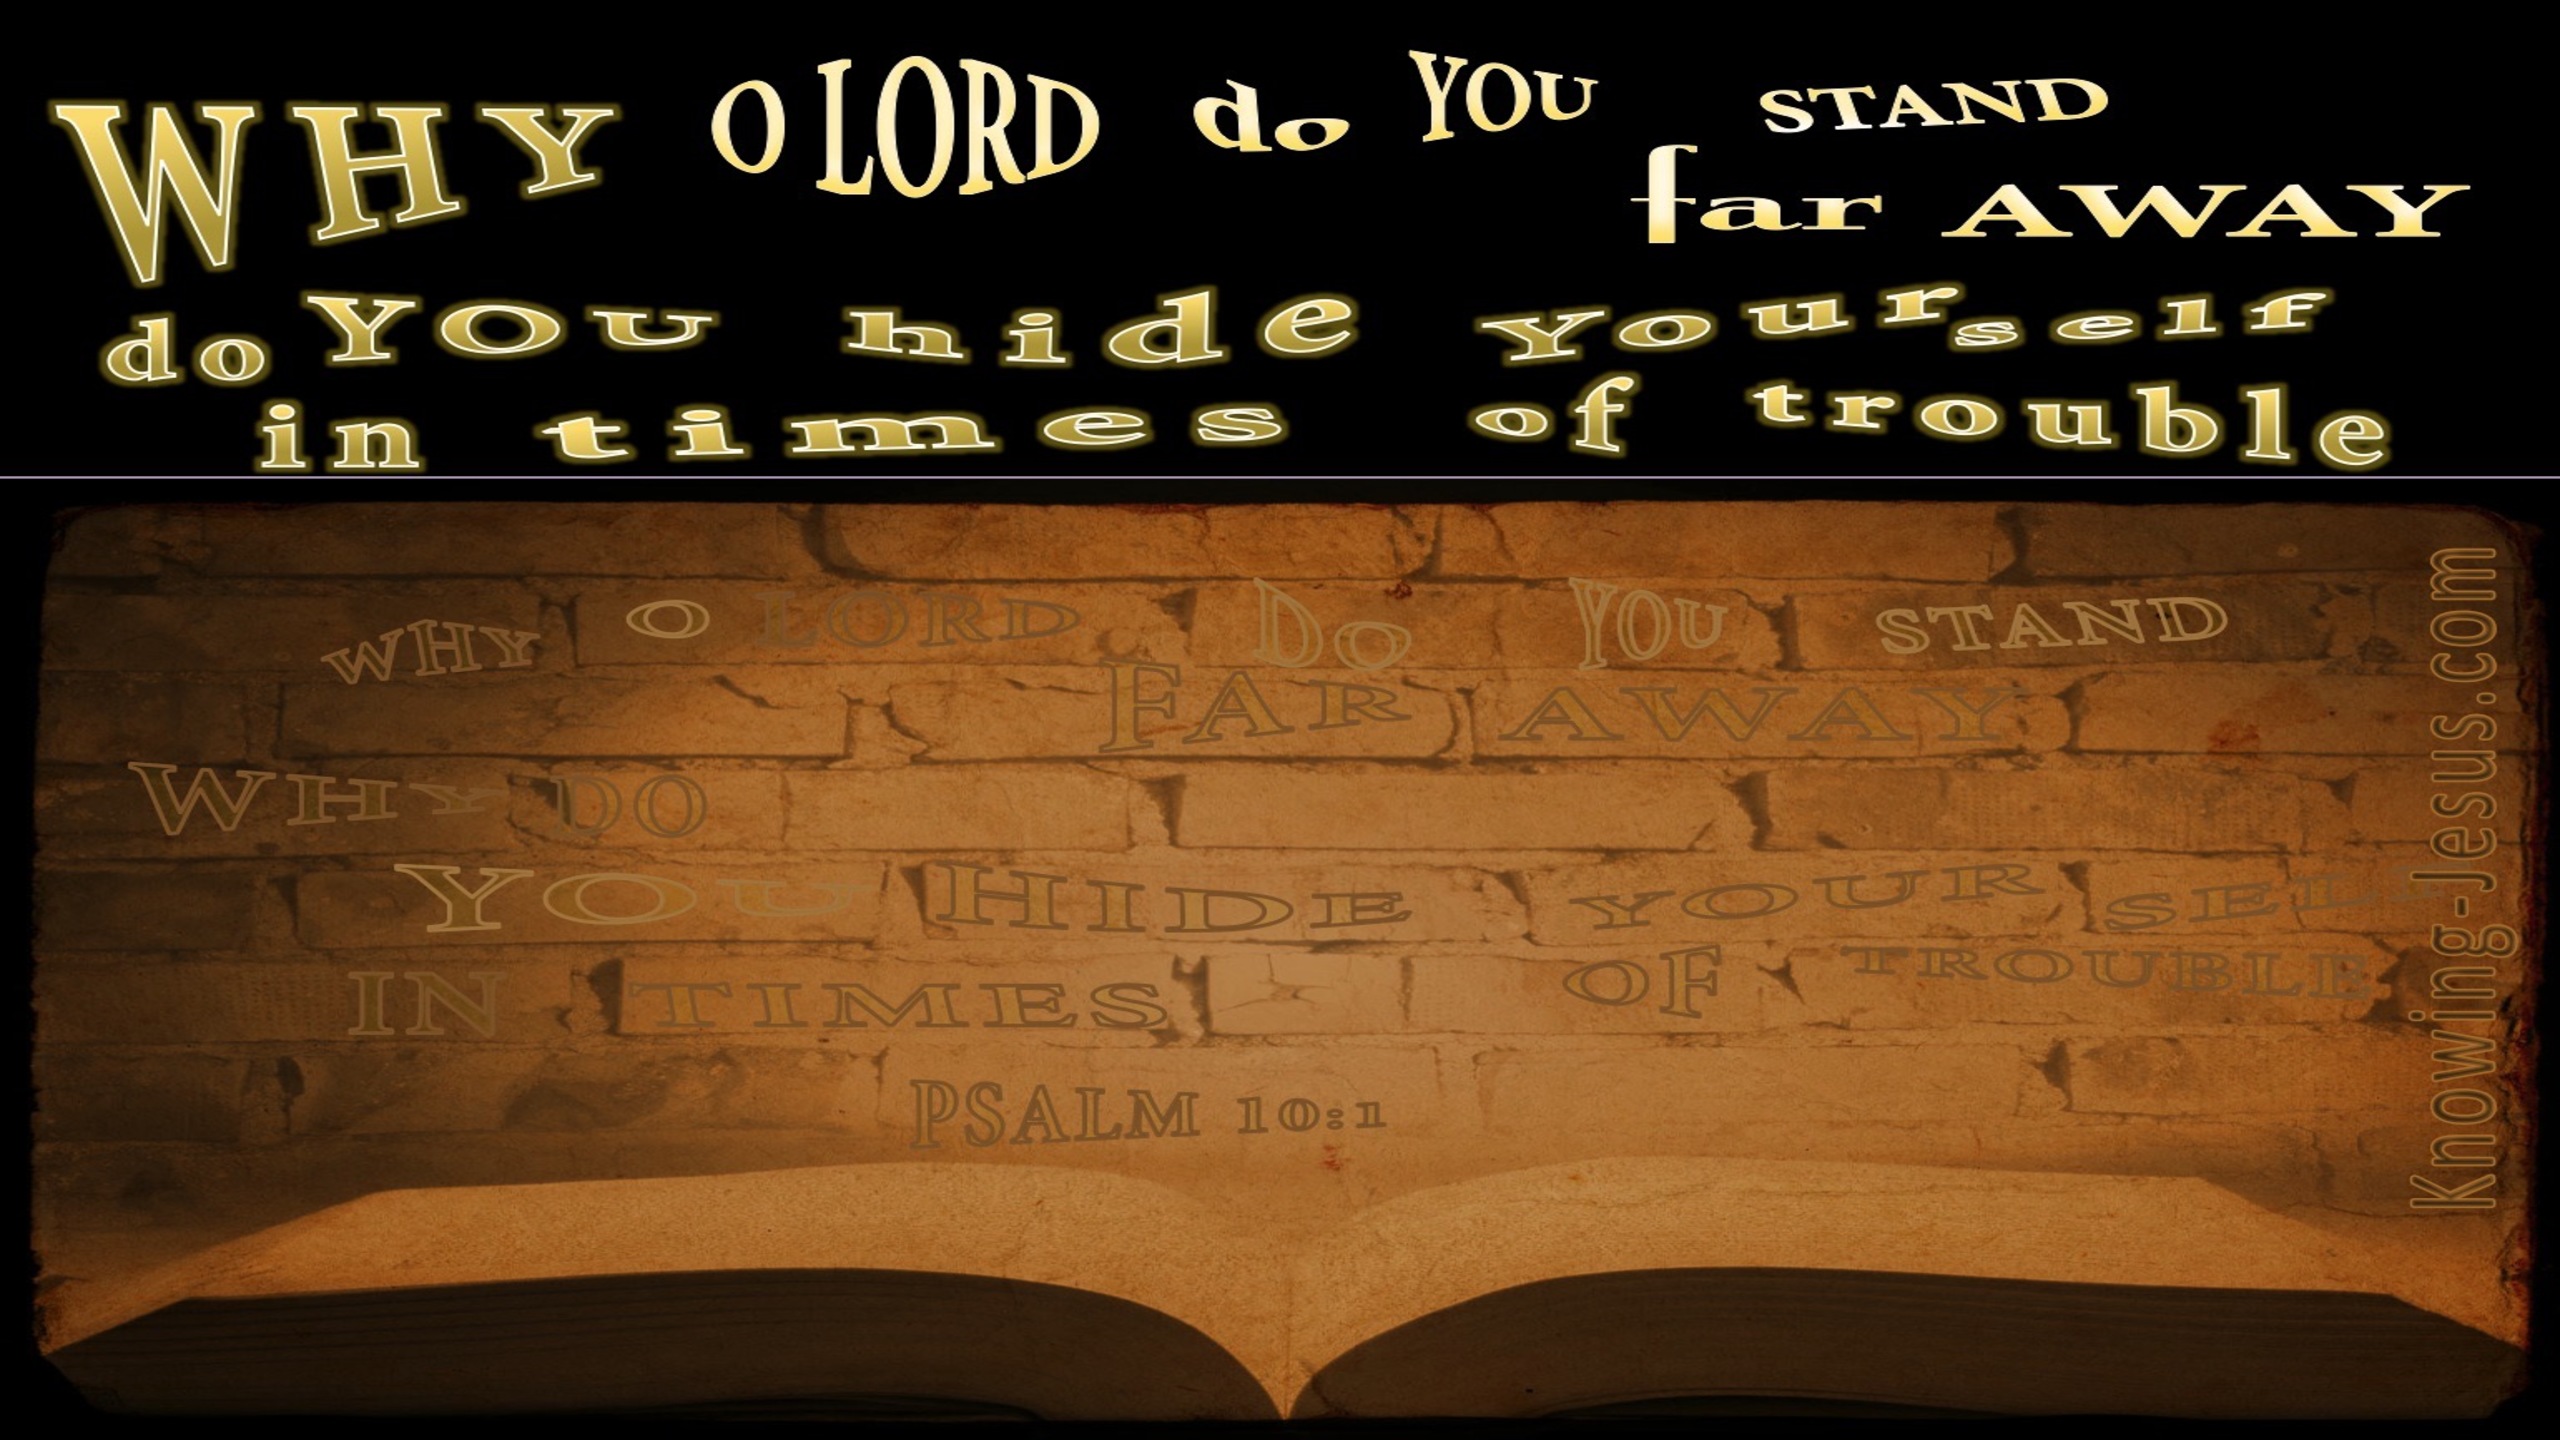 WHY O LORD do YOU STAND
far AWAY
do YOU hide Yourself
in times of trouble
WHY O LORD DO YOU STAND
FAR AWAY
WHY DO
YOU HIDE YOUR SELF
IN TIMES OF TROUBLE
PSALM 10:1
Knowing-Jesus.com